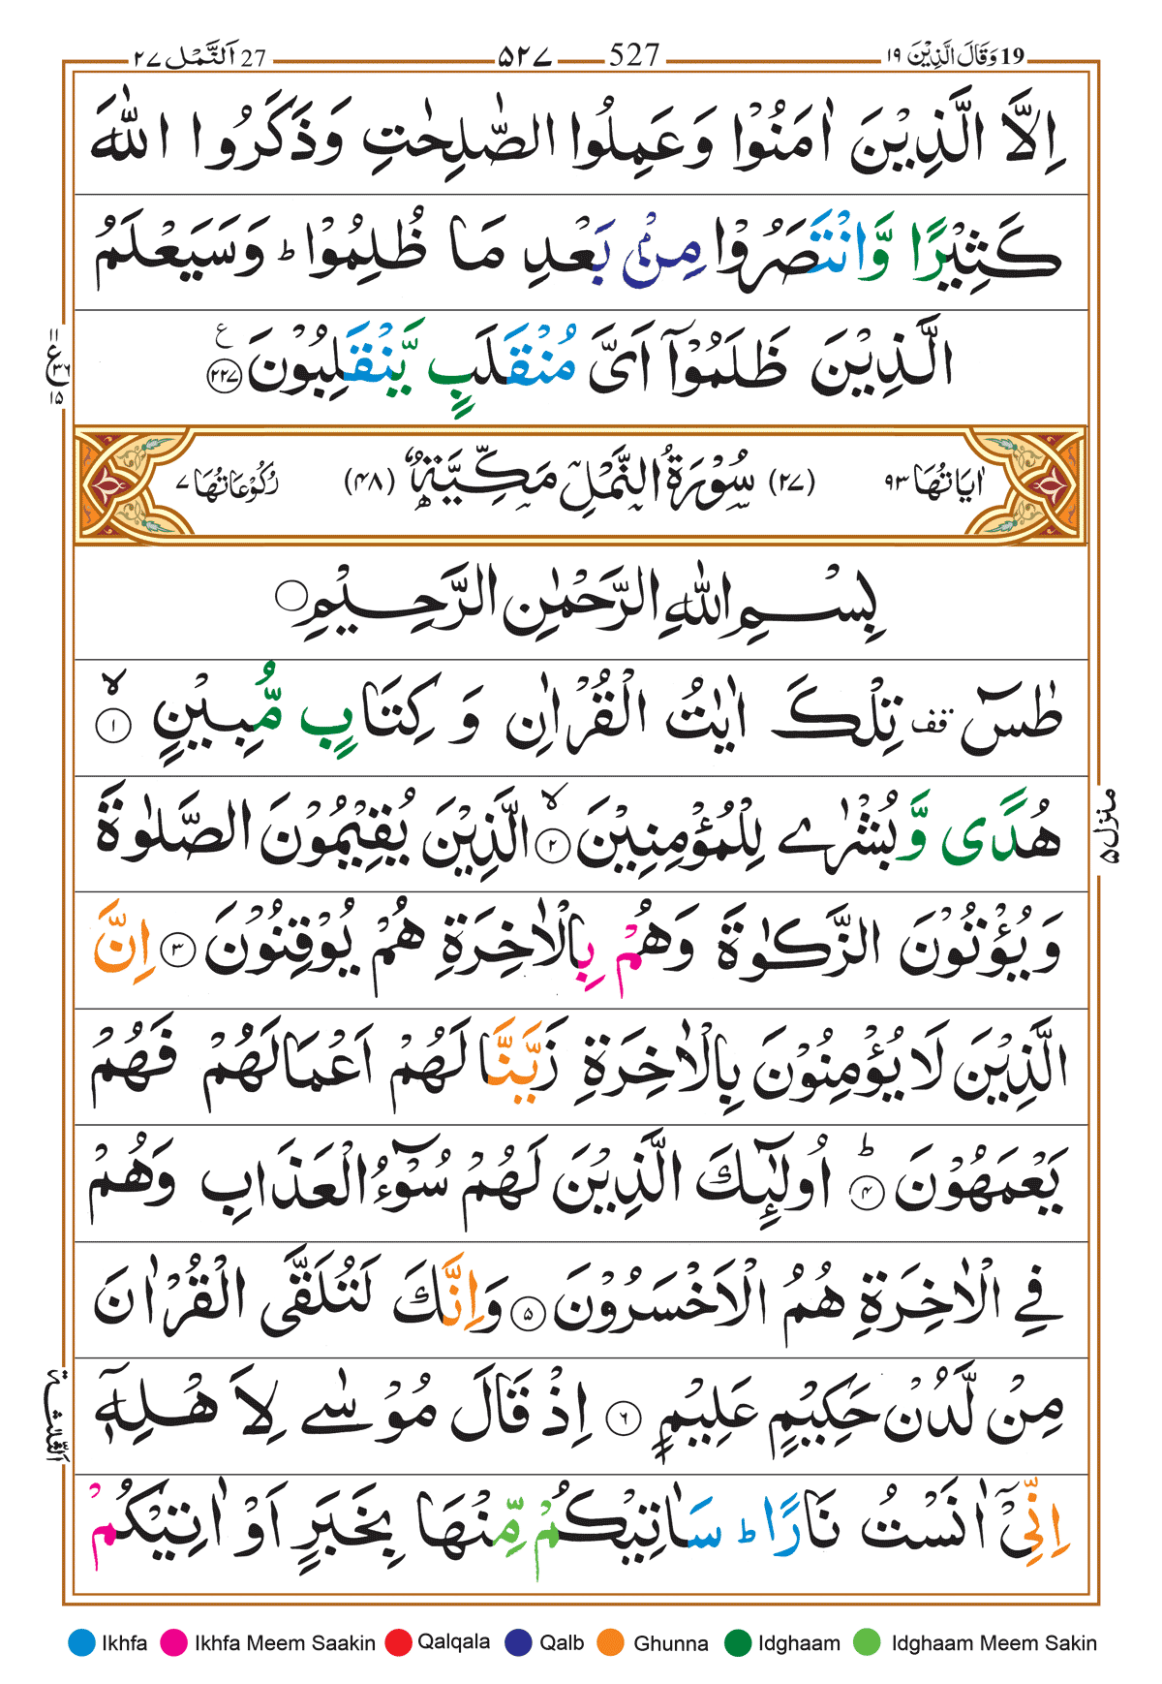 19 وَقَالَ الَّذِیْنَ ١٩ 527 ۵۲۷ 27 اَلنَّمْل ٢٧
اِلَّا الَّذِیْنَ اٰمَنُوْا وَعَمِلُوا الصّٰلِحٰتِ وَذَكَرُوا اللّٰهَ
كَثِیْرًا وَّانْتَصَرُوْا مِنْۢ بَعْدِ مَا ظُلِمُوْا ؕ وَسَیَعْلَمُ
الَّذِیْنَ ظَلَمُوْۤا اَیَّ مُنْقَلَبٍ یَّنْقَلِبُوْنَ ﴿۲۲۷﴾ ع
اٰیَاتُهَا ۹۳ (۲۷) سُوْرَةُ النَّمْلِ مَكِّیَّةٌ (۴۸) رُكُوْعَاتُهَا ۷
بِسْمِ اللّٰهِ الرَّحْمٰنِ الرَّحِیْمِ
طٰسٓ قف تِلْكَ اٰیٰتُ الْقُرْاٰنِ وَ كِتَابٍ مُّبِیْنٍ ﴿۱﴾ ۙ
هُدًی وَّبُشْرٰی لِلْمُؤْمِنِیْنَ ﴿۲﴾ ۙ الَّذِیْنَ یُقِیْمُوْنَ الصَّلٰوةَ
وَیُؤْتُوْنَ الزَّكٰوةَ وَهُمْ بِالْاٰخِرَةِ هُمْ یُوْقِنُوْنَ ﴿۳﴾ اِنَّ
الَّذِیْنَ لَا یُؤْمِنُوْنَ بِالْاٰخِرَةِ زَیَّنَّا لَهُمْ اَعْمَالَهُمْ فَهُمْ
یَعْمَهُوْنَ ﴿۴﴾ ؕ اُولٰٓىِٕكَ الَّذِیْنَ لَهُمْ سُوْٓءُ الْعَذَابِ وَهُمْ
فِی الْاٰخِرَةِ هُمُ الْاَخْسَرُوْنَ ﴿۵﴾ وَاِنَّكَ لَتُلَقَّی الْقُرْاٰنَ
مِنْ لَّدُنْ حَكِیْمٍ عَلِیْمٍ ﴿۶﴾ اِذْ قَالَ مُوْسٰی لِاَهْلِهٖۤ
اِنِّیْۤ اٰنَسْتُ نَارًا ؕ سَاٰتِیْكُمْ مِّنْهَا بِخَبَرٍ اَوْ اٰتِیْكُمْ
منزل ۵
Ikhfa Ikhfa Meem Saakin Qalqala Qalb Ghunna Idghaam Idghaam Meem Sakin